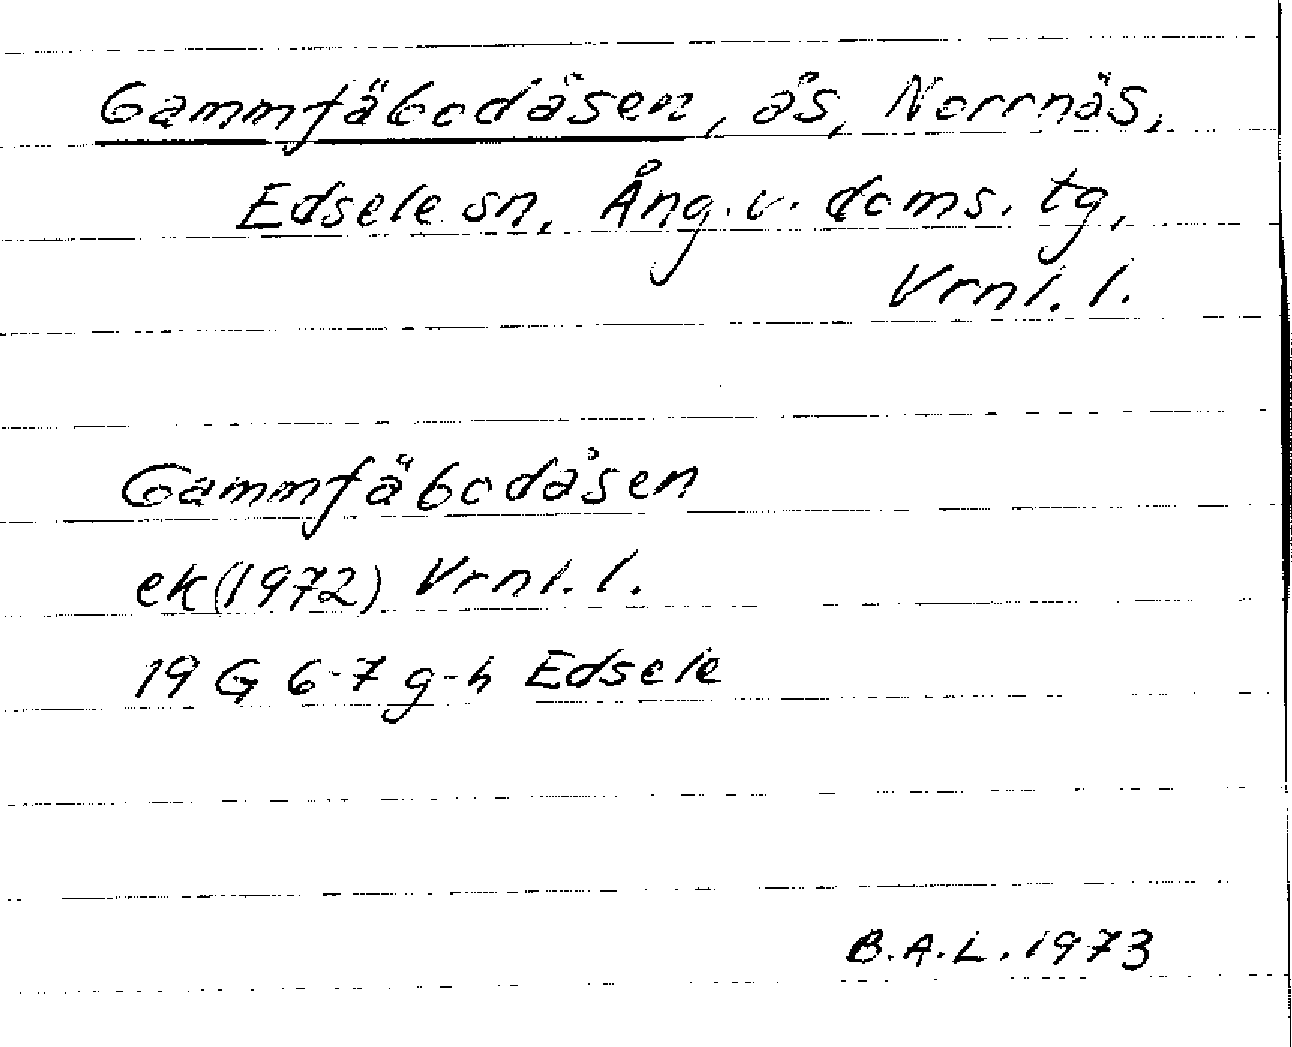 Gammfäbodåsen, ås, Norrnäs,
Edsele sn, Ång. v. doms. tg,
Vrnl. l.
Gammfäbodåsen
ek (1972) Vrnl. l.
19 G 6-7 g-h Edsele
B.A.L. 1973